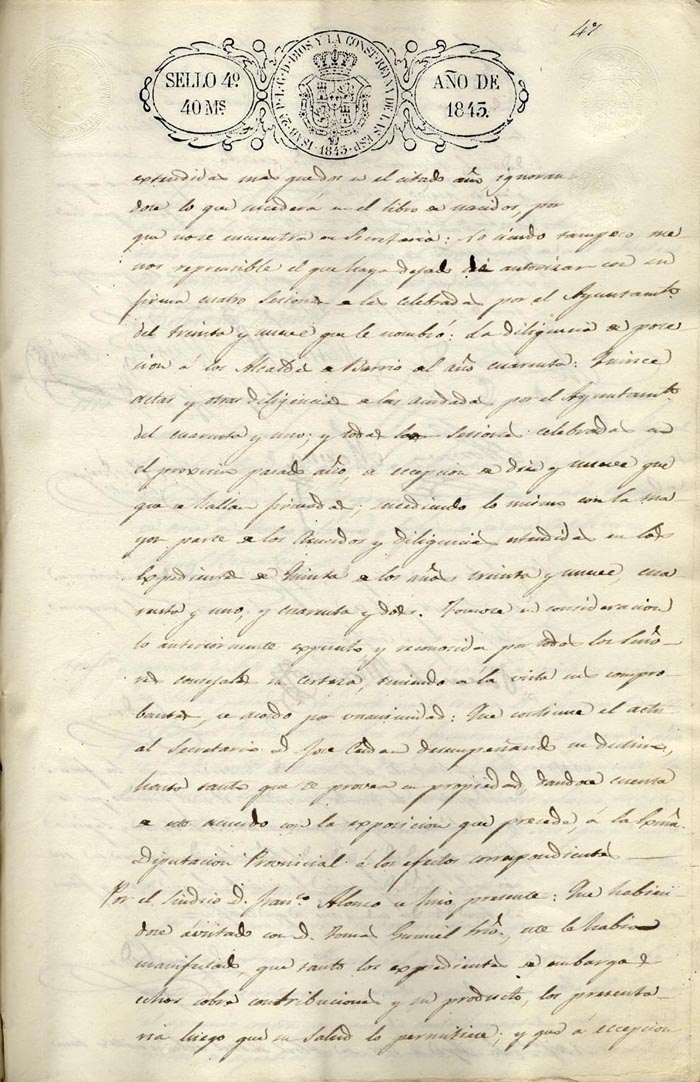 47
ISAB. 2ª P. L. G. D. DIOS Y LA CONST. REYNA DE LAS ESP. 1843.
SELLO 4º
40 Ms
AÑO DE
1843.
extendidas mas que dos en el citado año, ignoran
dose lo que sucederá en el libro de nacidos, por
que no se encuentra en Secretaria: No siendo tampoco me
nos reprensible el que haya dejado de autorizar con su
firma cuatro Sesiones de las celebradas por el Ayuntamto
del treinta y nueve que le nombró: La diligencia de pose
cion á los Alcaldes de Barrio el año cuarenta: Quince
actas y otras diligencias de las acordadas por el Ayuntamto
del cuarenta y uno; y todas las Sesiones celebradas en
el proximo pasado año, á excepcion de diez y nueve que
que se hallan firmadas; sucediendo lo mismo con la ma
yor parte de los Acuerdos y diligencias estendidas en los
Expedientes de Quinta de los años treinta y nueve, cua
renta y uno, y cuarenta y dos. Tomose en consideracion
lo anteriormente expuesto y reconocido por todos los Seño
res concejales su certeza, teniendo á la vista sus compro
bantes, se acordó por unanimidad: Que continue el actu
al Secretario D. Jose desempeñando su destino,
hasta tanto que se provea en propiedad, dandose cuenta
de este acuerdo con la exposicion que precede, á la Exma
Diputacion Provincial á los efectos correspondientes
Por el Sindico D. Franco Alonso se hizo presente: Que habien
dose avistado con D. Tomas este le habia
manifestado, que tanto los expedientes de embargo
echos sobre contribuciones y su producto, los presenta
ria luego que su salud lo permitiese; y que á excepcion